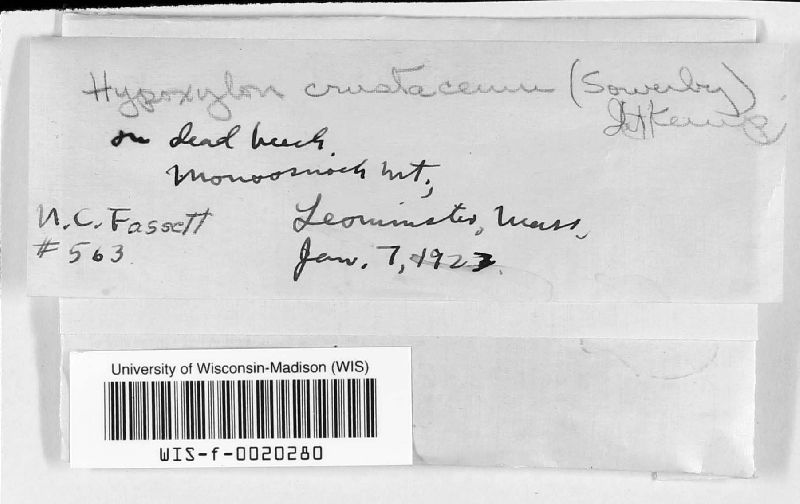 Hypoxylon crustaceum (Sowerby)
on dead beech.
Monoosnock Mt.,
N.C. Fassett Leominster, Mass.,
#563 Jan. 7, 1923.
University of Wisconsin-Madison (WIS)
WIS-f-0020280